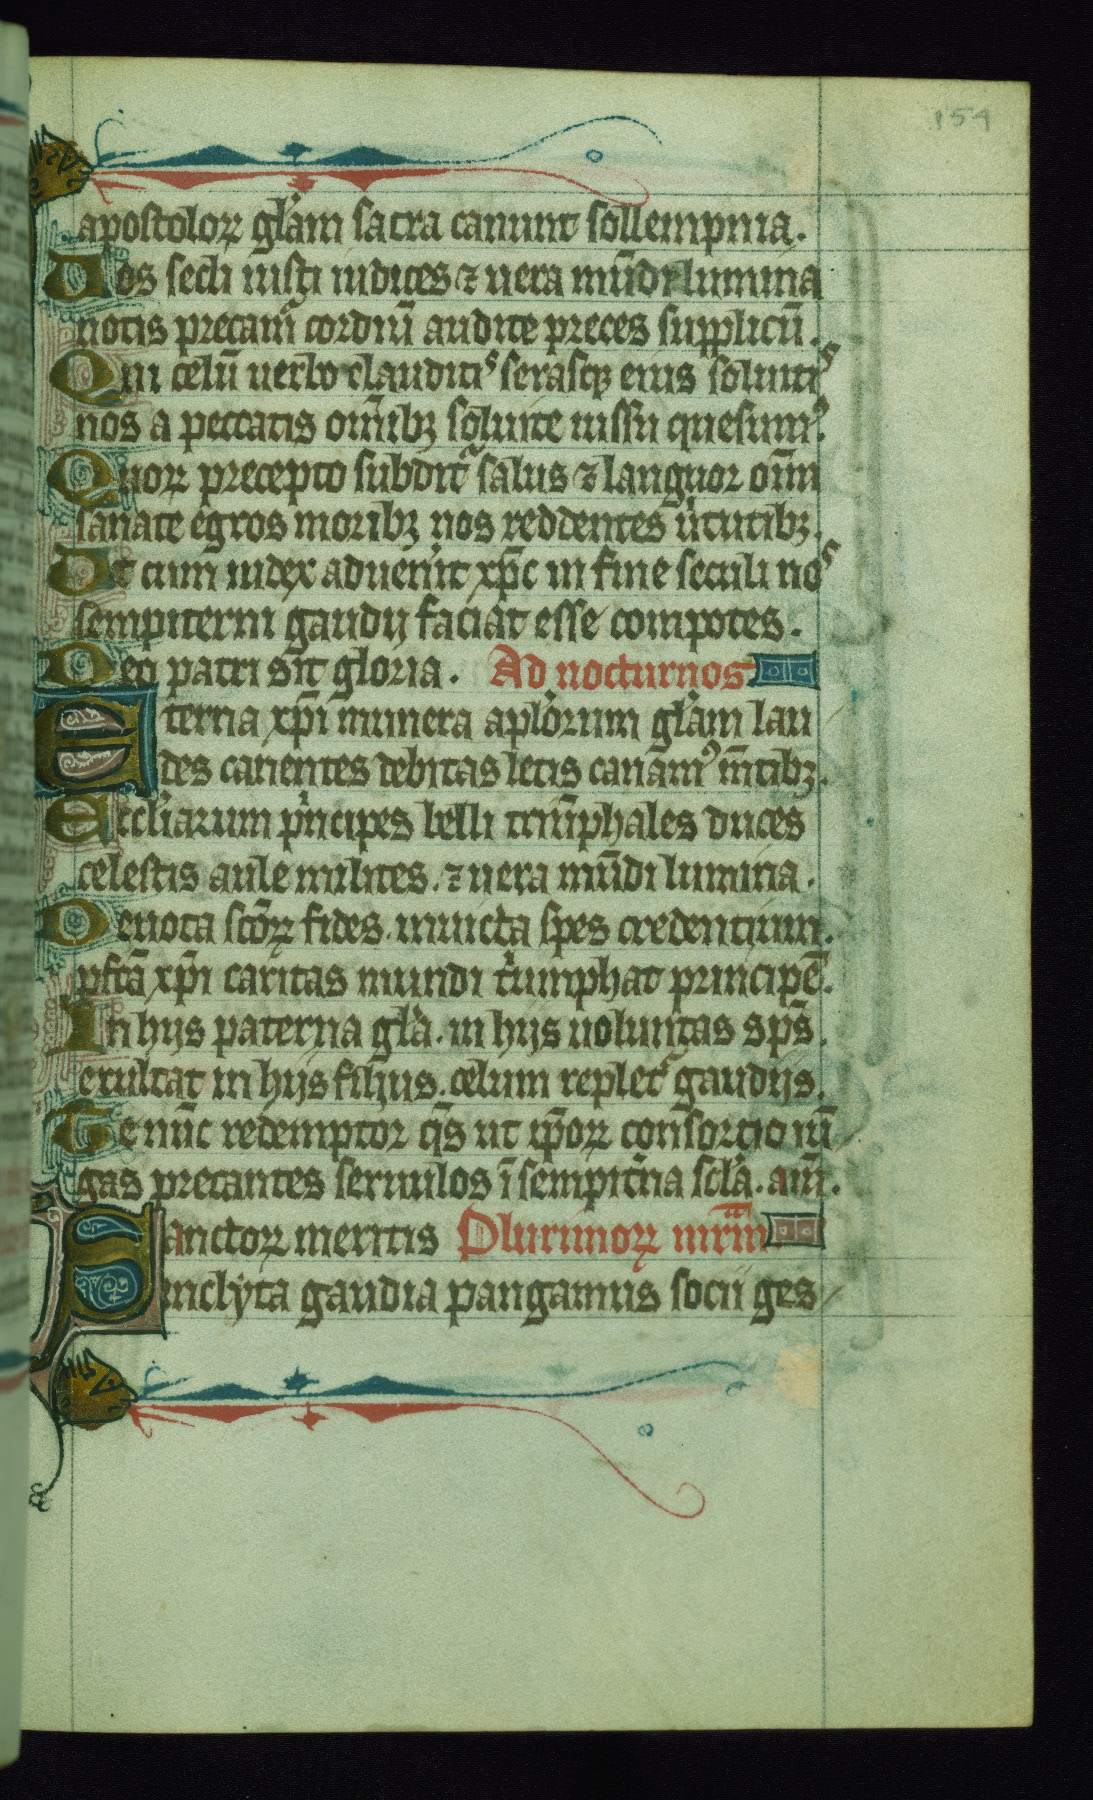 154
apostoloꝝ gl̃am sacra canunt sollempnia.
Uos secli iusti iudices ⁊ uera mũdi lumina
uotis precam᷒ cordiũ audite preces supplicũ.
Qui celũ uerbo clauditis serasqꝫ eius soluitis
nos a peccatis om̃ibꝫ soluite iussu quesum᷒.
Quoꝝ precepto subditͬ salus ⁊ languor om̃
sanate egros moribꝫ nos reddentes ũtutibꝫ.
Ut cum iudex aduen̾it xp̃c in fine seculi nos
sempiterni gaudij faciat esse compotes.
Deo patri sit gloria. Ad nocturnos
Eterna xp̃i munera apl̃orum gl̃am lau
des canentes debitas letis canam᷒ m̃tibꝫ.
Eccl̃iarum pͥncipes belli triũphales duces
celestis aule milites. ⁊ uera mũdi lumina.
Deuota sc̃oꝝ fides. inuicta spes credentium.
pfc̃a xp̃i caritas mundi tͥumphat principẽ.
In hijs paterna gl̃a. in hijs uoluntas sp̃s.
exultat in hijs filius. celum repletͬ gaudijs.
Te nũc redemptor q̃s ut ip̃oꝝ consortio iũ
gas precantes seruulos ĩ sempit̾na scl̃a. am̃.
Sanctoꝝ meritis Plurimoꝝ mr̃m
inclyta gaudia pangamus socii ges